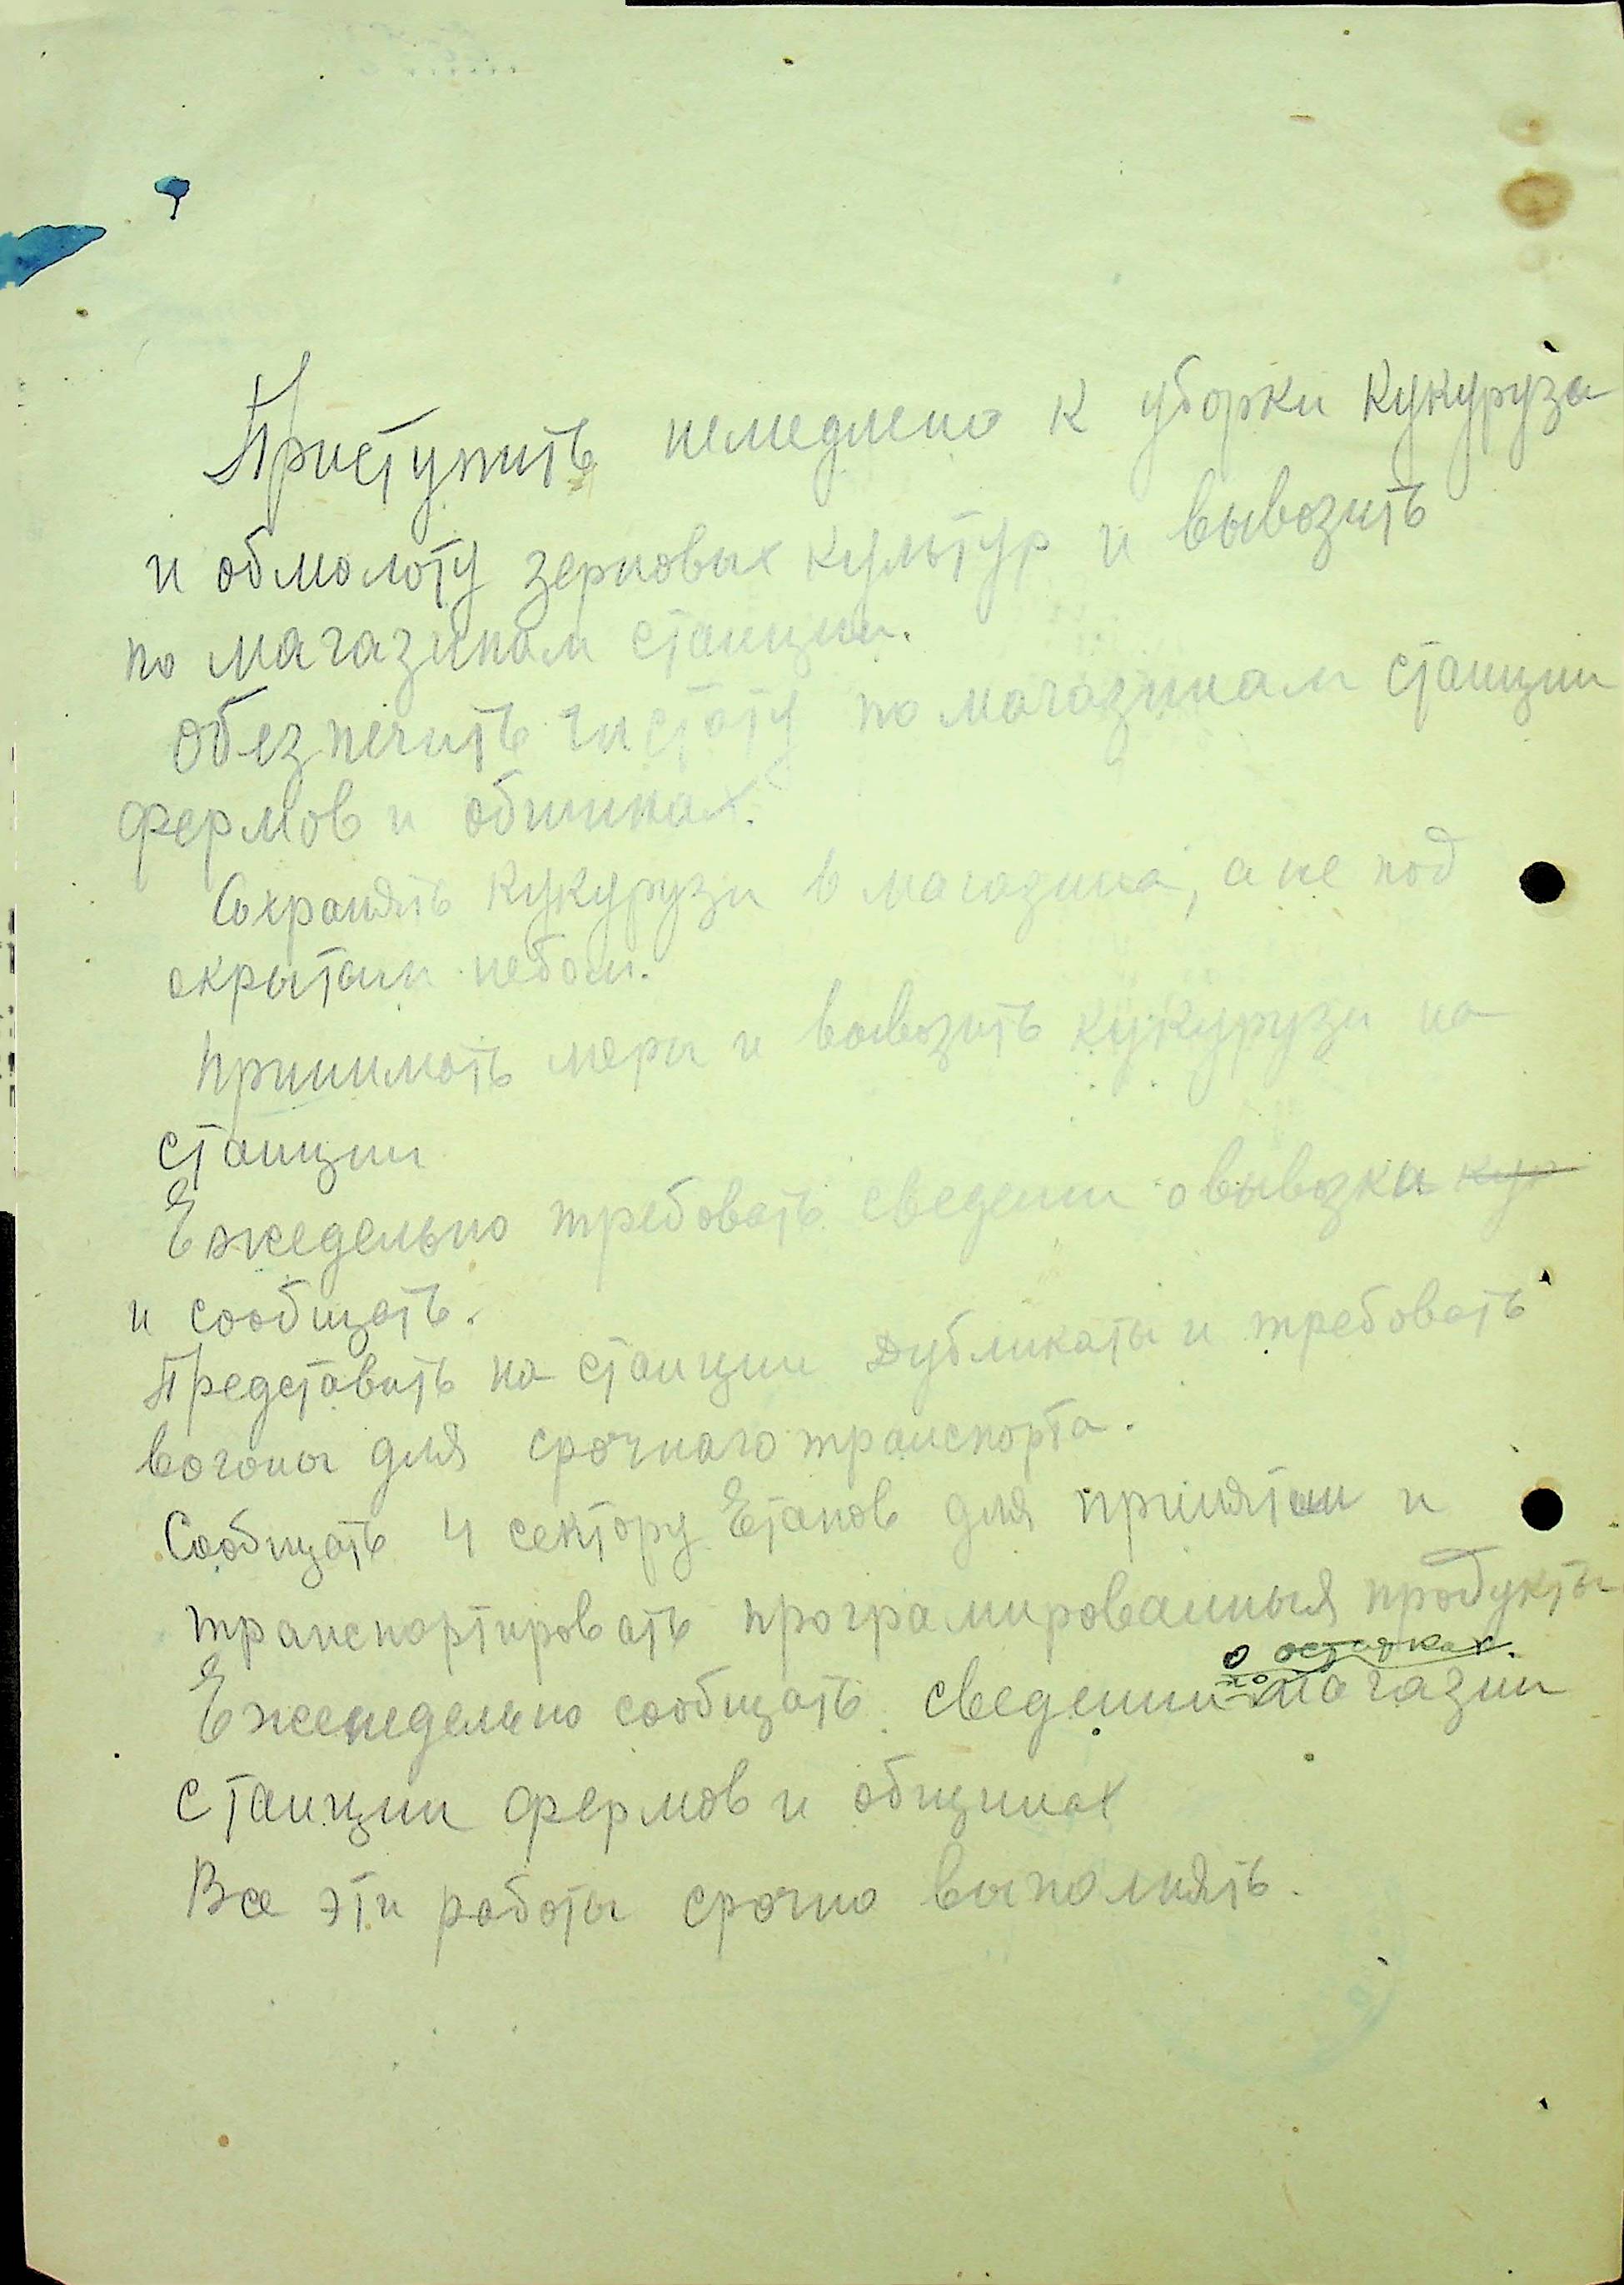 Приступить немедлено к уборки кукуруза
и обмолоту зерновых культур и вывозить
по магазинам станции.
Обезпечить чистоту по магазинам станции
фермов и общинах.
Сохранять кукурузи в магазина, а не под
окрытам небом.
Принимать меры и вывозить кукурузи на
станции
Ежедельно требовать сведении о вывозки кук
и сообщать.
Представить на станции дубликаты и требовать
вагоны для срочнаго транспорта.
Сообщать 4 сектору Етапов для принятии и
транспортировать програмированныя продукты
о остатках.
Еженедельно сообщать сведении по магазин
станции фермов и общинах
Все эти работы срочно выполнять.